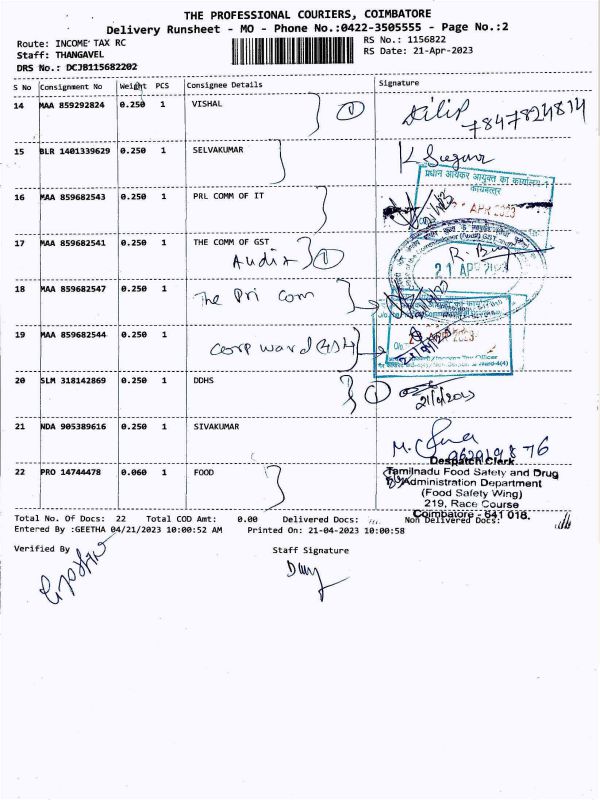 THE PROFESSIONAL COURIERS, COIMBATORE
Delivery Runsheet - MO - Phone No.:0422-3505555 - Page No.:2
Route: INCOME TAX RC
RS No.: 1156822
Staff: THANGAVEL
RS Date: 21-Apr-2023
DRS No.: DCJB115682202
S No Consignment No Weight PCS Consignee Details Signature
14 MAA 859292824 0.250 1 VISHAL 1 Dilip
7847824814
15 BLR 1401339629 0.250 1 SELVAKUMAR
प्रधान आयकर आयुक्त का कार्यालय
16 MAA 859682543 0.250 1 PRL COMM OF IT
APR 2023
17 MAA 859682541 0.250 1 THE COMM OF GST
Audit 1
21 APR 2023
18 MAA 859682547 0.250 1 The Pri Com
19 MAA 859682544 0.250 1
Corp ward
20 SLM 318142869 0.250 1 DDHS 1
21 NDA 905389616 0.250 1 SIVAKUMAR
Despatch Clerk
22 PRO 14744478 0.060 1 FOOD
Tamilnadu Food Safety and Drug
Administration Department
(Food Safety Wing)
219, Race Course
Coimbatore - 641 018.
Total No. Of Docs: 22 Total COD Amt: 0.00 Delivered Docs: Non Delivered Docs:
Entered By :GEETHA 04/21/2023 10:00:52 AM Printed On: 21-04-2023 10:00:58
Verified By Staff Signature